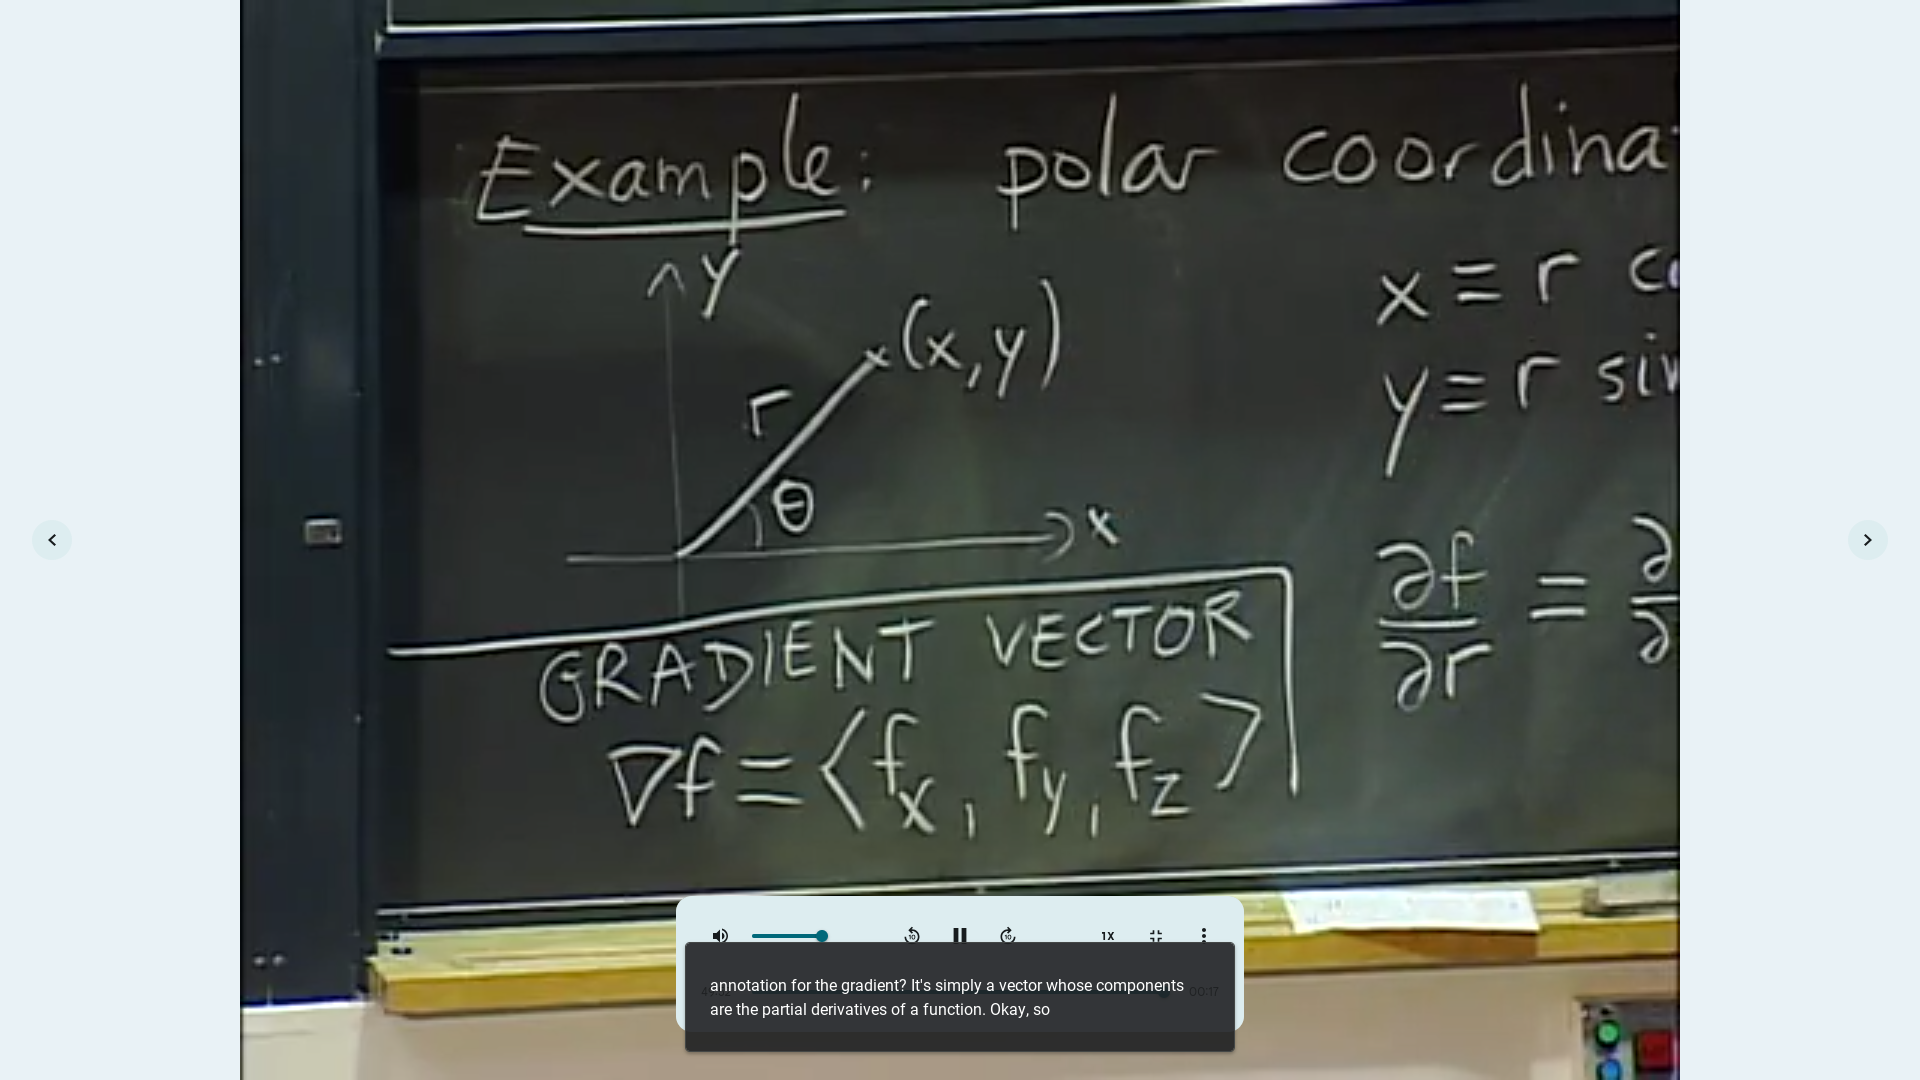 Example: polar coordina
y
(x,y)
r
θ
x
x = r co
y = r sin
∂f/∂r = ∂/∂
GRADIENT VECTOR
∇f = ⟨f_x, f_y, f_z⟩
1X
annotation for the gradient? It's simply a vector whose components
are the partial derivatives of a function. Okay, so
00:17